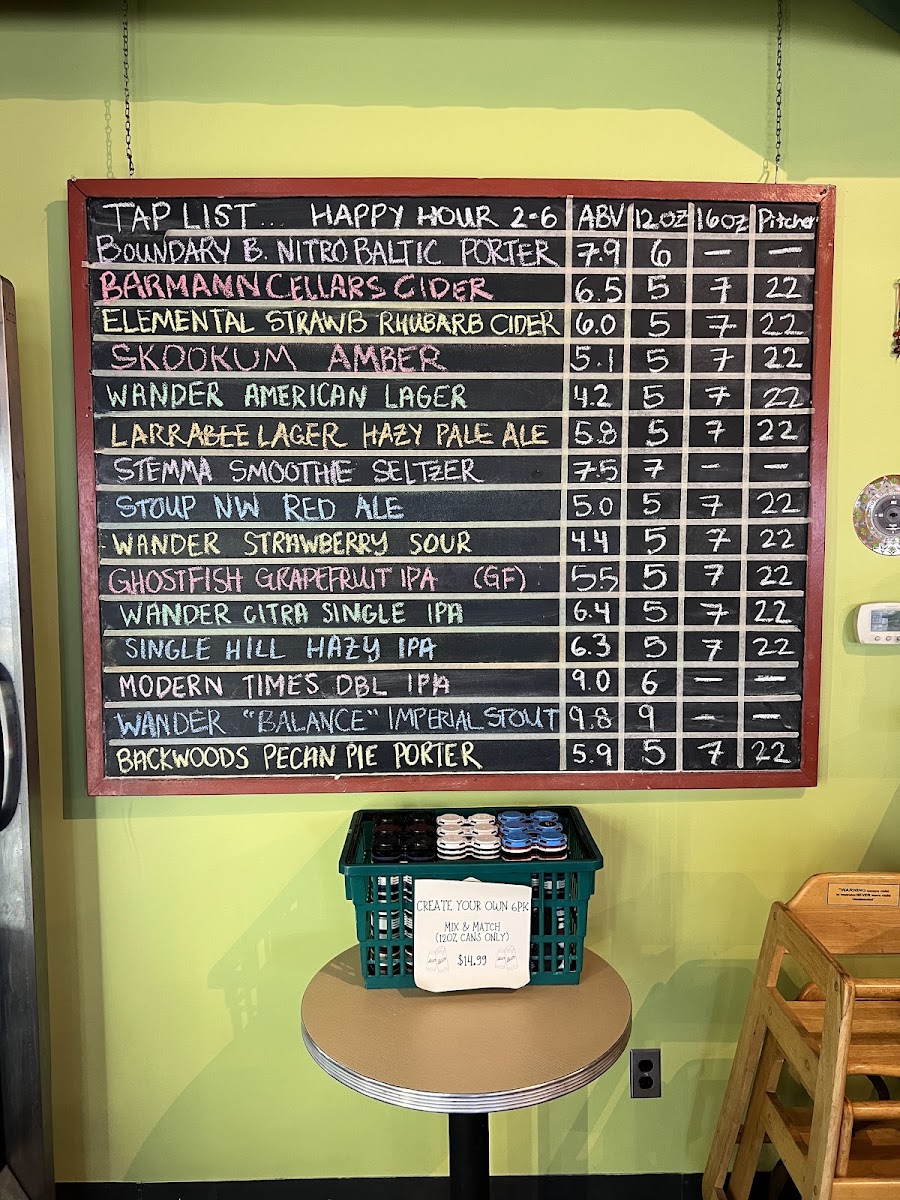 TAP LIST... HAPPY HOUR 2-6 ABV 12OZ 16OZ Pitcher
BOUNDARY B. NITRO BALTIC PORTER 7.9 6 — —
BARMANN CELLARS CIDER 6.5 5 7 22
ELEMENTAL STRAWB RHUBARB CIDER 6.0 5 7 22
SKOOKUM AMBER 5.1 5 7 22
WANDER AMERICAN LAGER 4.2 5 7 22
LARRABEE LAGER HAZY PALE ALE 5.8 5 7 22
STEMMA SMOOTHIE SELTZER 7.5 7 — —
STOUP NW RED ALE 5.0 5 7 22
WANDER STRAWBERRY SOUR 4.4 5 7 22
GHOSTFISH GRAPEFRUIT IPA (GF) 5.5 5 7 22
WANDER CITRA SINGLE IPA 6.4 5 7 22
SINGLE HILL HAZY IPA 6.3 5 7 22
MODERN TIMES DBL IPA 9.0 6 — —
WANDER "BALANCE" IMPERIAL STOUT 9.8 9 — —
BACKWOODS PECAN PIE PORTER 5.9 5 7 22
CREATE YOUR OWN 6PK
MIX & MATCH
(12OZ CANS ONLY)
$14.99
WARNING